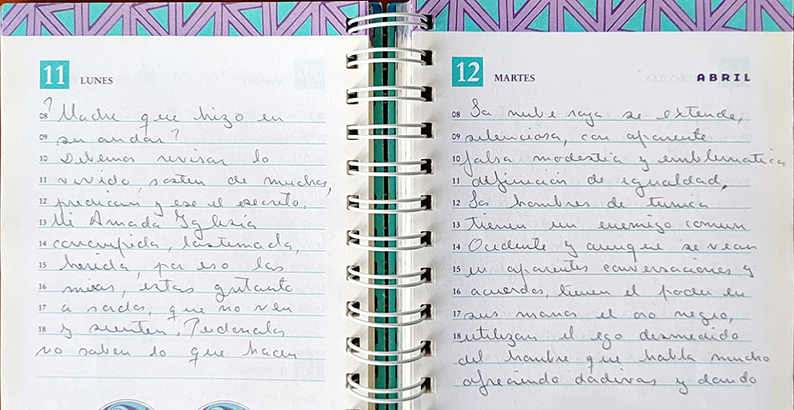 11 LUNES
08 ? Madre que hizo en
09 su andar?
10 Debemos revisar lo
11 vivido, sosten de muchos,
12 predicar y ese el escrito.
13 Mi Amada Iglesia
14 corrompida, lastimada,
15 herida, por eso las
16 miras, estas gritando
17 a sordos, que no ven
18 y sienten, Perdonalos
no saben lo que hacen
12 MARTES ABRIL
08 La nube roja se extiende,
09 silenciosa, con aparente
10 falsa modestia y emblematica
11 definición de igualdad,
12 Los hombres de tunica
13 tienen un enemigo comun
14 Occidente y aunque se vean
15 en aparentes conversaciones y
16 acuerdos, tienen el poder en
17 sus manos el oro negro,
18 utilizan el ego desmedido
del hombre que habla mucho
ofreciendo dádivas y dando